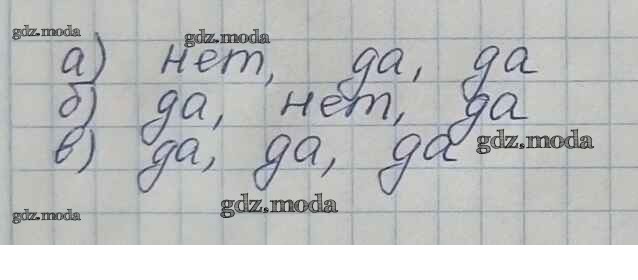 gdz.moda gdz.moda
а) нет, да, да
б) да, нет, да
в) да, да, да gdz.moda
gdz.moda gdz.moda